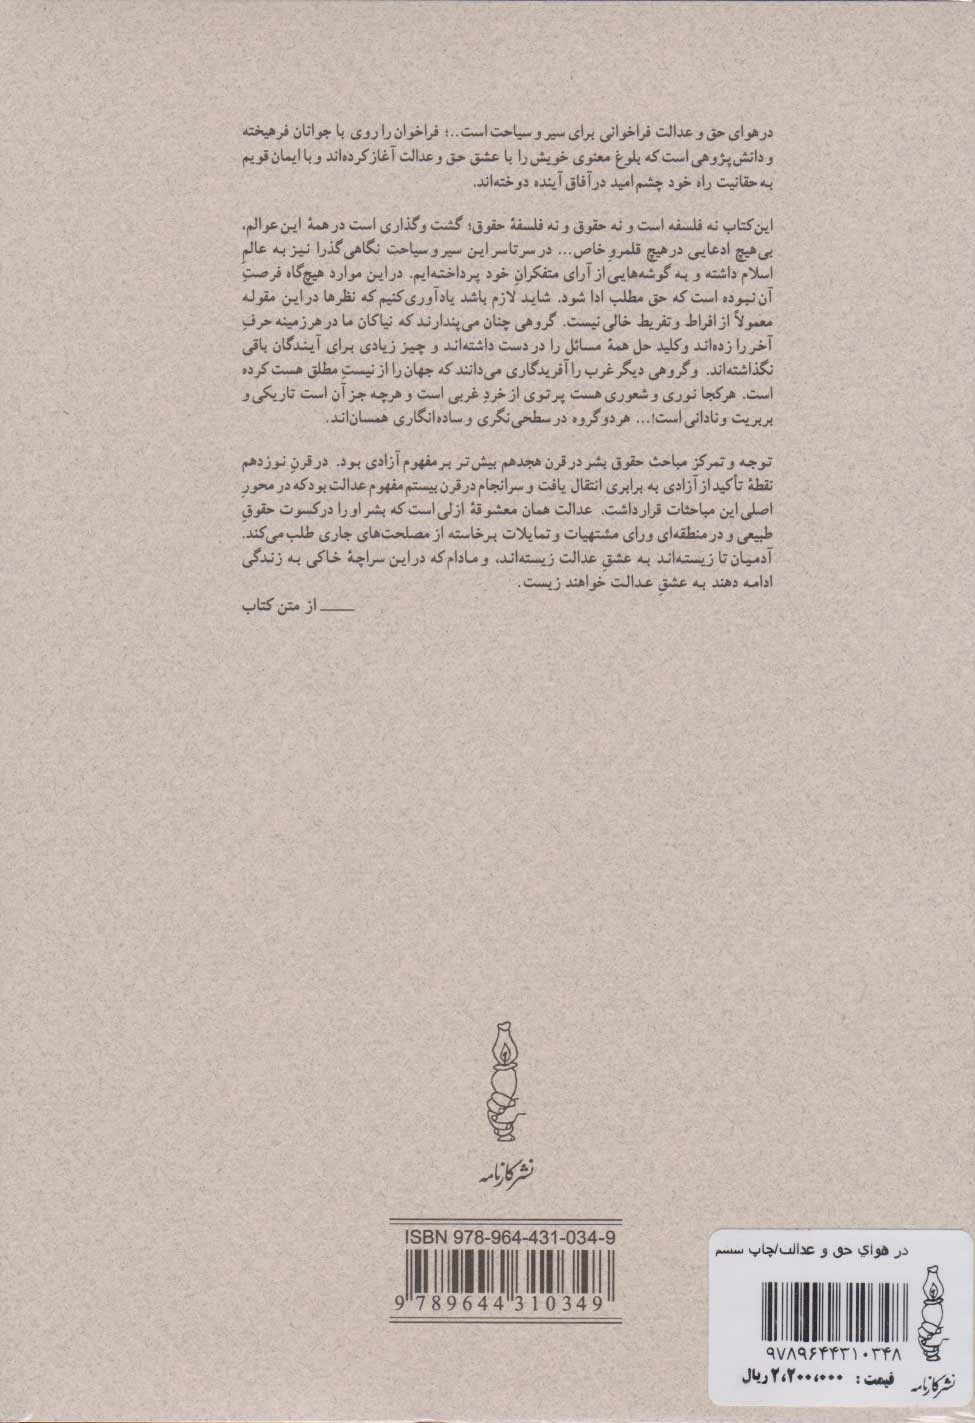 در هوای حق و عدالت فراخوانی برای سیر و سیاحت است..؛ فراخوان را روی با جوانان فرهیخته
و دانش‌پژوهی است که بلوغ معنوی خویش را با عشق حق و عدالت آغاز کرده‌اند و با ایمان قویم
به حقانیت راه خود چشم امید در آفاق آینده دوخته‌اند.
این کتاب نه فلسفه است و نه حقوق و نه فلسفهٔ حقوق؛ گشت و گذاری است در همهٔ این عوالم،
بی‌هیچ ادعایی در هیچ قلمروِ خاص... در سرتاسر این سیر و سیاحت نگاهی گذرا نیز به عالمِ
اسلام داشته و به گوشه‌هایی از آرای متفکرانِ خود پرداخته‌ایم. در این موارد هیچ‌گاه فرصتِ
آن نبوده است که حق مطلب ادا شود. شاید لازم باشد یادآوری کنیم که نظرها در این مقوله
معمولاً از افراط و تفریط خالی نیست. گروهی چنان می‌پندارند که نیاکان ما در هر زمینه حرفِ
آخر را زده‌اند و کلید حل همهٔ مسائل را در دست داشته‌اند و چیز زیادی برای آیندگان باقی
نگذاشته‌اند. و گروهی دیگر غرب را آفریدگاری می‌دانند که جهان را از نیستِ مطلق هست کرده
است. هرکجا نوری و شعوری هست پرتوی از خردِ غربی است و هرچه جز آن است تاریکی و
بربریت و نادانی است!... هر دو گروه در سطحی‌نگری و ساده‌انگاری همسان‌اند.
توجه و تمرکز مباحث حقوق بشر در قرن هجدهم بیش‌تر بر مفهوم آزادی بود. در قرنِ نوزدهم
نقطهٔ تأکید از آزادی به برابری انتقال یافت و سرانجام در قرن بیستم مفهوم عدالت بود که در محورِ
اصلی این مباحثات قرار داشت. عدالت همان معشوقهٔ ازلی است که بشر او را در کسوت حقوقِ
طبیعی و در منطقه‌ای ورای مشتهیات و تمایلات برخاسته از مصلحت‌های جاری طلب می‌کند.
آدمیان تا زیسته‌اند به عشقِ عدالت زیسته‌اند، و مادام که در این سراچهٔ خاکی به زندگی
ادامه دهند به عشقِ عدالت خواهند زیست.
ـــــ از متن کتاب
نشر کارنامه
ISBN 978-964-431-034-9
9 789644 310349
در هوای حق و عدالت/چاپ ششم
۹۷۸۹۶۴۴۳۱۰۳۴۸
قیمت : ۲،۲۰۰،۰۰۰ ریال
نشر کارنامه